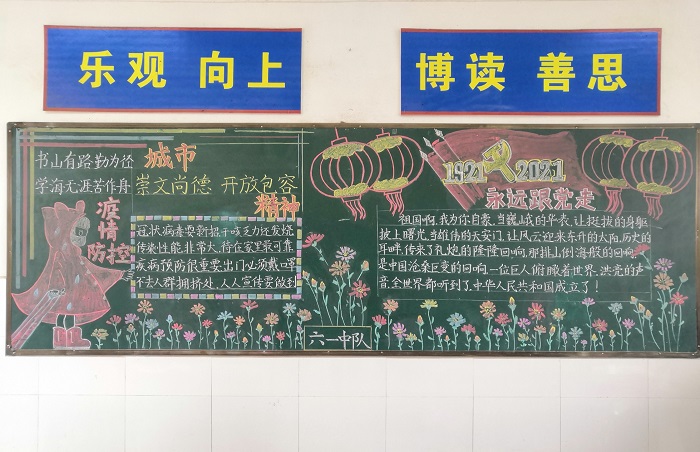 乐观 向上
博读 善思
书山有路勤为径
学海无涯苦作舟
城市
崇文尚德 开放包容
精神
疫情
防控
冠状病毒要新招 干咳乏力还发烧
传染性能非常大 待在家里最可靠
疾病预防很重要 出门必须戴口罩
不去人群拥挤处 人人宣传要做到
1921 2021
永远跟党走
祖国啊,我为你自豪,当巍峨的华表,让挺拔的身躯
披上曙光,当雄伟的天安门,让风云迎来东升的太阳,历史的
耳畔,传来了礼炮的隆隆回响,那排山倒海般的回响
是中国沧桑巨变的回响,一位巨人俯瞰着世界,洪亮的声
音,全世界都听到了,中华人民共和国成立了!
六一中队